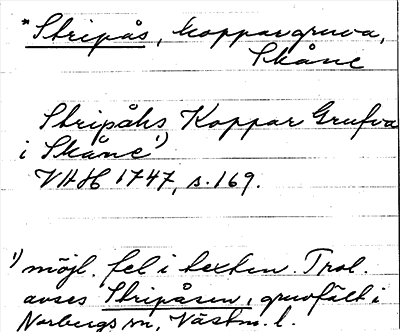 *Stripås, koppargruva,
Skåne
Stripåhs Koppar Grufva
i Skåne¹)
VHH 1747, s. 169.
¹) möjl. fel i texten. Trol.
avses Stripåsen, gruvfält i
Norbergs sn, Västm. l.